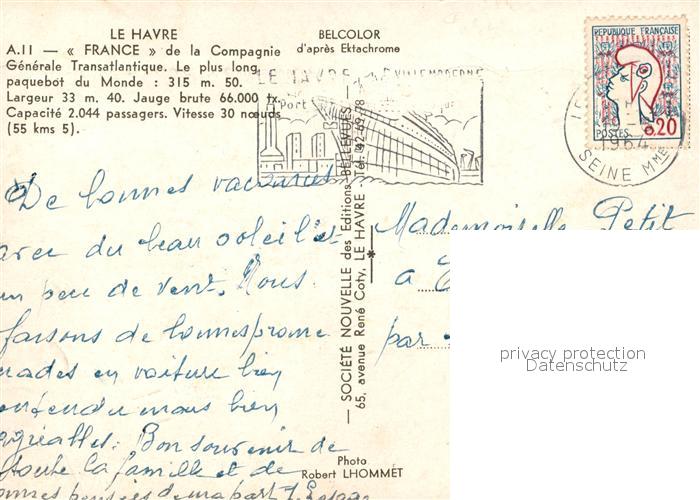 LE HAVRE
A.11 — « FRANCE » de la Compagnie
Générale Transatlantique. Le plus long
paquebot du Monde : 315 m. 50.
Largeur 33 m. 40. Jauge brute 66.000 tx.
Capacité 2.044 passagers. Vitesse 30 nœuds
(55 kms 5).
BELCOLOR
d'après Ektachrome
LE HAVRE VILLE MODERNE
Port
REPUBLIQUE FRANÇAISE
POSTES 0,20
1964
SEINE Mme
De bonnes vacances
avec du beau soleil et
un peu de vent. Nous
faisons de bonnes prome
nades en voiture bien
entendu mais bien
agréables. Bon souvenir de
toute la famille et de
bonnes pensées de ma part
— SOCIÉTÉ NOUVELLE des Editions BELLEVUES
65, avenue René Coty, LE HAVRE - Tél. 42-69-78
Mademoiselle Petit
à
par
Photo
Robert LHOMMET
privacy protection
Datenschutz